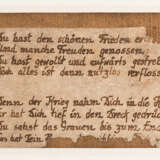 Du hast den schönen Frieden er
Und manche Freuden genossen.
Du hast gewollt und aufwärts gestre
alles ist denn nutzlos verfloss
Denn der Krieg nahm Dich in die H
hat Dich tief in den Dreck gedrück
Du sahst das Grauen bis zum En
hat Dein